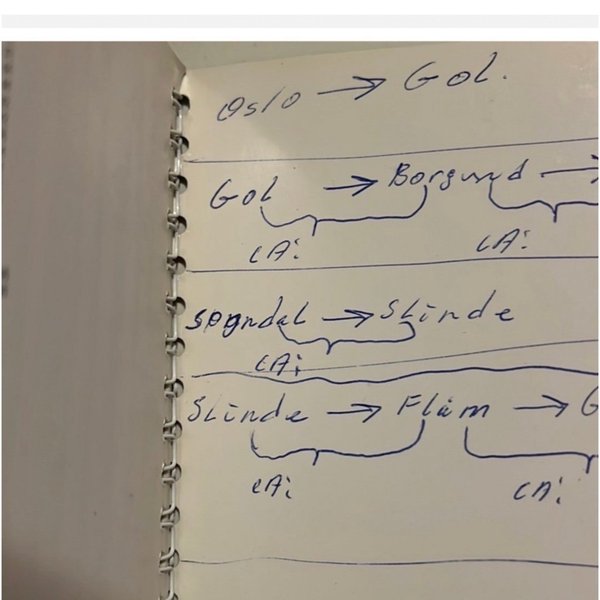 Oslo → Gol.
Gol → Borgund →
(A: (A:
Sogndal → Slinde
(A:
Slinde → Flåm → G
(A: (A: